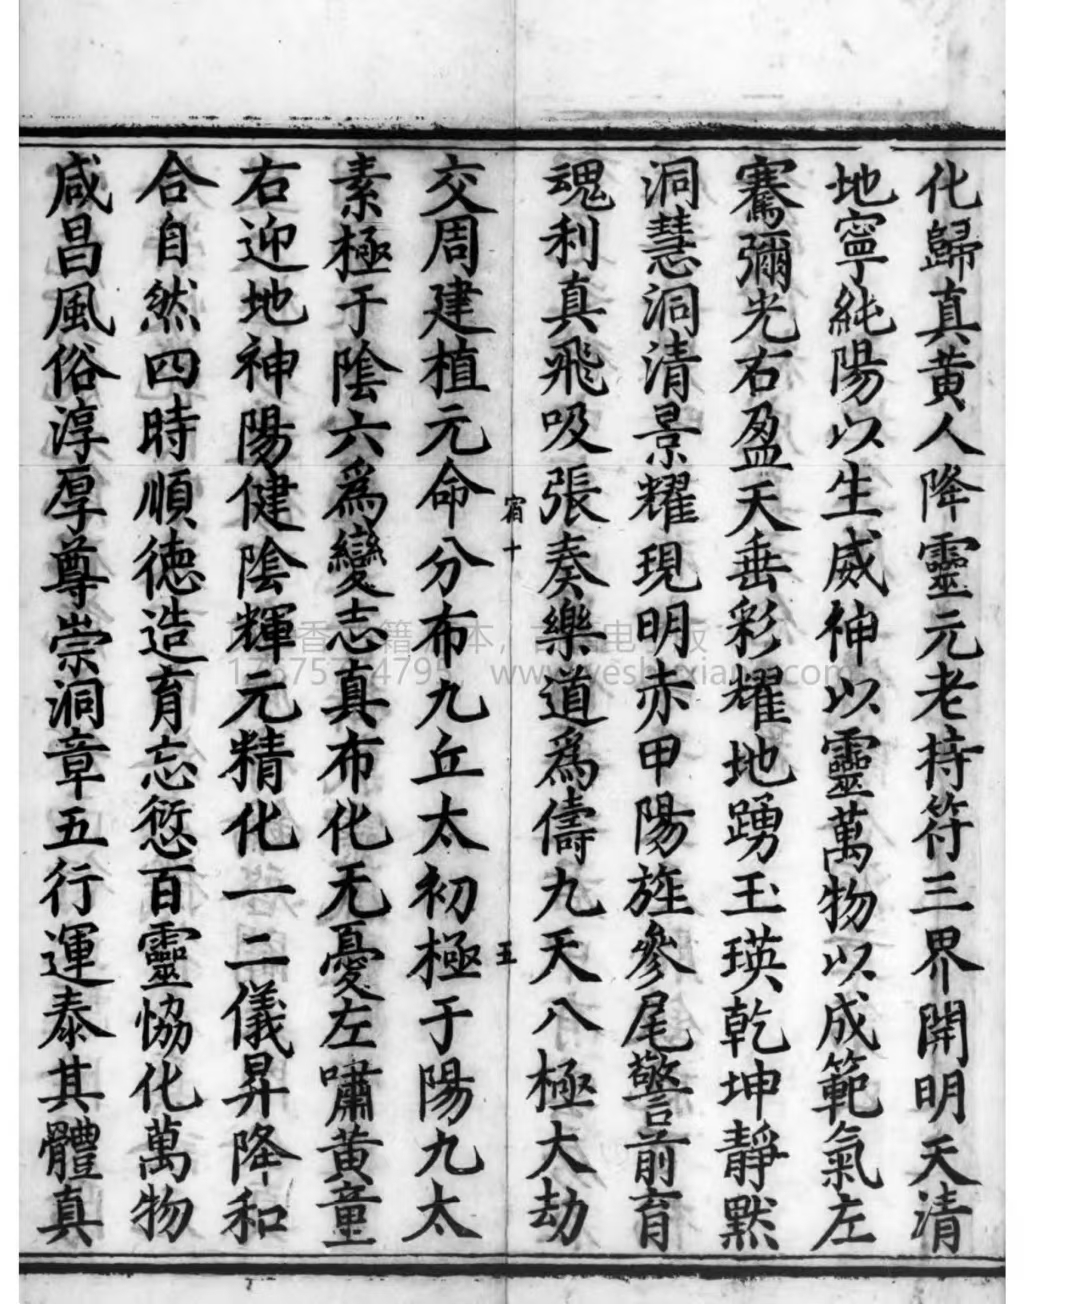 化歸真黄人降靈元老持符三界開明天清
地寧純陽以生威神以靈萬物以成範氣左
騫彌光右盈天垂彩耀地踴玉瑛乾坤靜黙
洞慧洞清景耀現明赤甲陽旌參尾警前育
魂利真飛吸張奏樂道爲儔九天八極大劫
宿十
五
交周建植元命分布九丘太初極于陽九太
素極于陰六爲變志真布化无憂左嘯黄童
右迎地神陽健陰輝元精化一二儀昇降和
合自然四時順徳造育忘愆百靈恊化萬物
咸昌風俗淳厚尊崇洞章五行運泰其體真
www.yeshuxiang.com